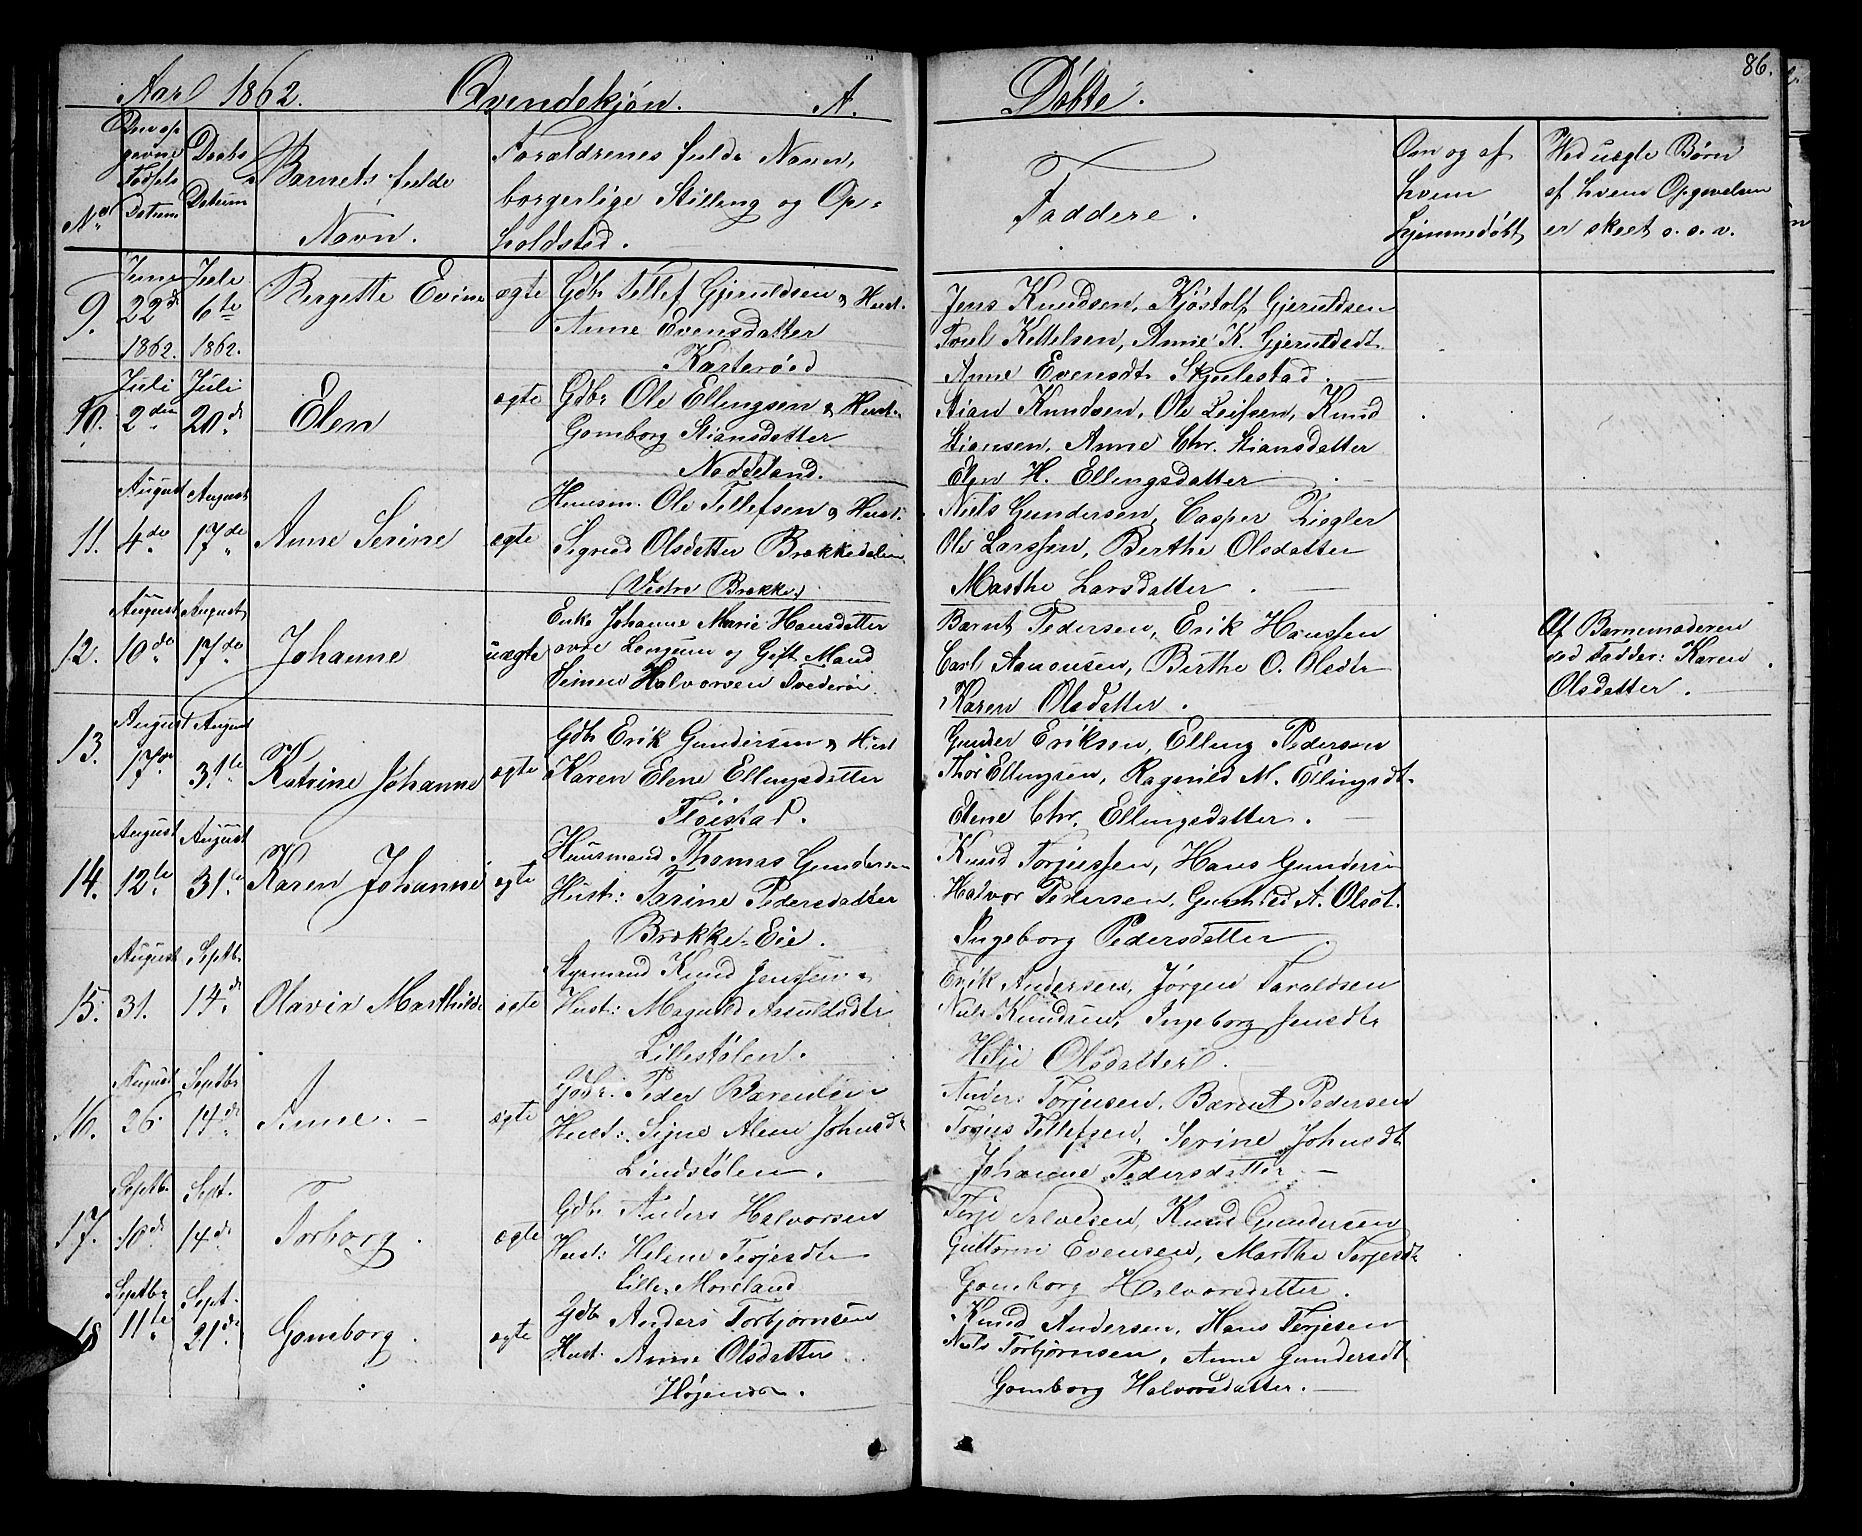 Aar 1862. Qvendekjøn. A. Døbte. 86.
No.
Den opgivne Fødsels Datum
Daabs Datum
Barnets fulde
Navn.
Forældrenes fulde Navn,
borgerlige Stilling og Op-
holdsted.
Faddere.
Om og af
hvem
hjemmedøbt
Ved uægte Børn
af hvem Opgivelsen
er skeet o. s. v.
9. Juni 22d 1862. Juli 6te 1862. Bergette Evine ægte
Gdbr Tellef Gjeruldsen & Hust.
Anne Evensdatter
Kasterøed
Jens Knudsen, Kjøstolf Gjeruldsen
Poul Kittelsen, Anne K. Gjerulddt
Anne Evensdt Skjulestad.
10. Juli 2den Juli 20d. Elen ægte
Gdbr Ole Ellingsen & Hust.
Gomborg Stiansdatter
Naddeland.
Stian Knudsen, Ole Leifsen, Knud
Stiansen, Anne Chr. Stiansdatter
Elen H. Ellingsdatter
11. August 4de August 17de Anne Serine ægte
Huusm. Ole Tellefsen & Hust.
Sigrid Olsdatter Brækkedalen
(Vestre Brække)
Niels Gundersen, Casper Ziegler
Ole Larssen, Berthe Olsdatter
Marthe Larsdatter.
12. August 10de August 17de Johanne uægte
Enke Johanne Marie Hansdatter
øvre Longum og Gift Mand
Simen Halvorsen Tvederøi.
Bærnt Pedersen, Erik Hanssen
Carl Aanonsen, Berthe O. Olsdtr
Karen Olsdatter.
Af Barnemoderen
ved Fadder: Karen
Olsdatter.
13. August 17de August 31te Katrine Johanne ægte
Gdb Erik Gundersen & Hust
Karen Elene Ellingsdatter
Fløistad.
Gunder Eriksen, Elling Pedersen
Thor Ellingsen, Ragnild M. Ellingsdt.
Elene Chr. Ellingsdatter.
14. August 12te August 31te Karen Johanne ægte
Huusmand Thomas Gundersen
Hust: Tarine Pedersdatter
Brække-Eie.
Knud Torjussen, Hans Gundersen
Halvor Pedersen, Gunhild A. Olsdt.
Ingeborg Pedersdatter
15. August 31. Septbr. 14d. Olavia Marthilde ægte
Styrmand Knud Jenssen &
Hust: Magnild Asuldsdtr
Lillestølen.
Erik Andersen, Jørgen Taraldsen
Niels Knudsen, Ingeborg Jensdtr
Helje Olsdatter.
16. August 26 Septbr 14d. Anne. ægte
Gdbr. Peder Bærentsen
Hust: Signe Alene Johnsdt
Lindstølen.
Anders Torjusen, Bærnt Pedersen
Torjus Tellefsen, Serine Johnsdt
Johanne Pedersdatter
17. Septbr. 10d Sept. 14d Torborg. ægte
Gdb Anders Halvorsen
Hust: Helene Terjesdtr
Lille Moreland
Terje Salvesen, Knud Gundersen
Guttorm Evensen, Marthe Terjesdt
Gomborg Halvorsdatter.
18 Septbr 11te Sept. 21d. Gomborg. ægte
Gdb Anders Torbjørnsen
Hust. Anne Olsdatter
Højenes.
Knud Andersen, Hans Terjesen
Niels Torbjørnsen, Anne Gundersdt
Gomborg Halvorsdatter.